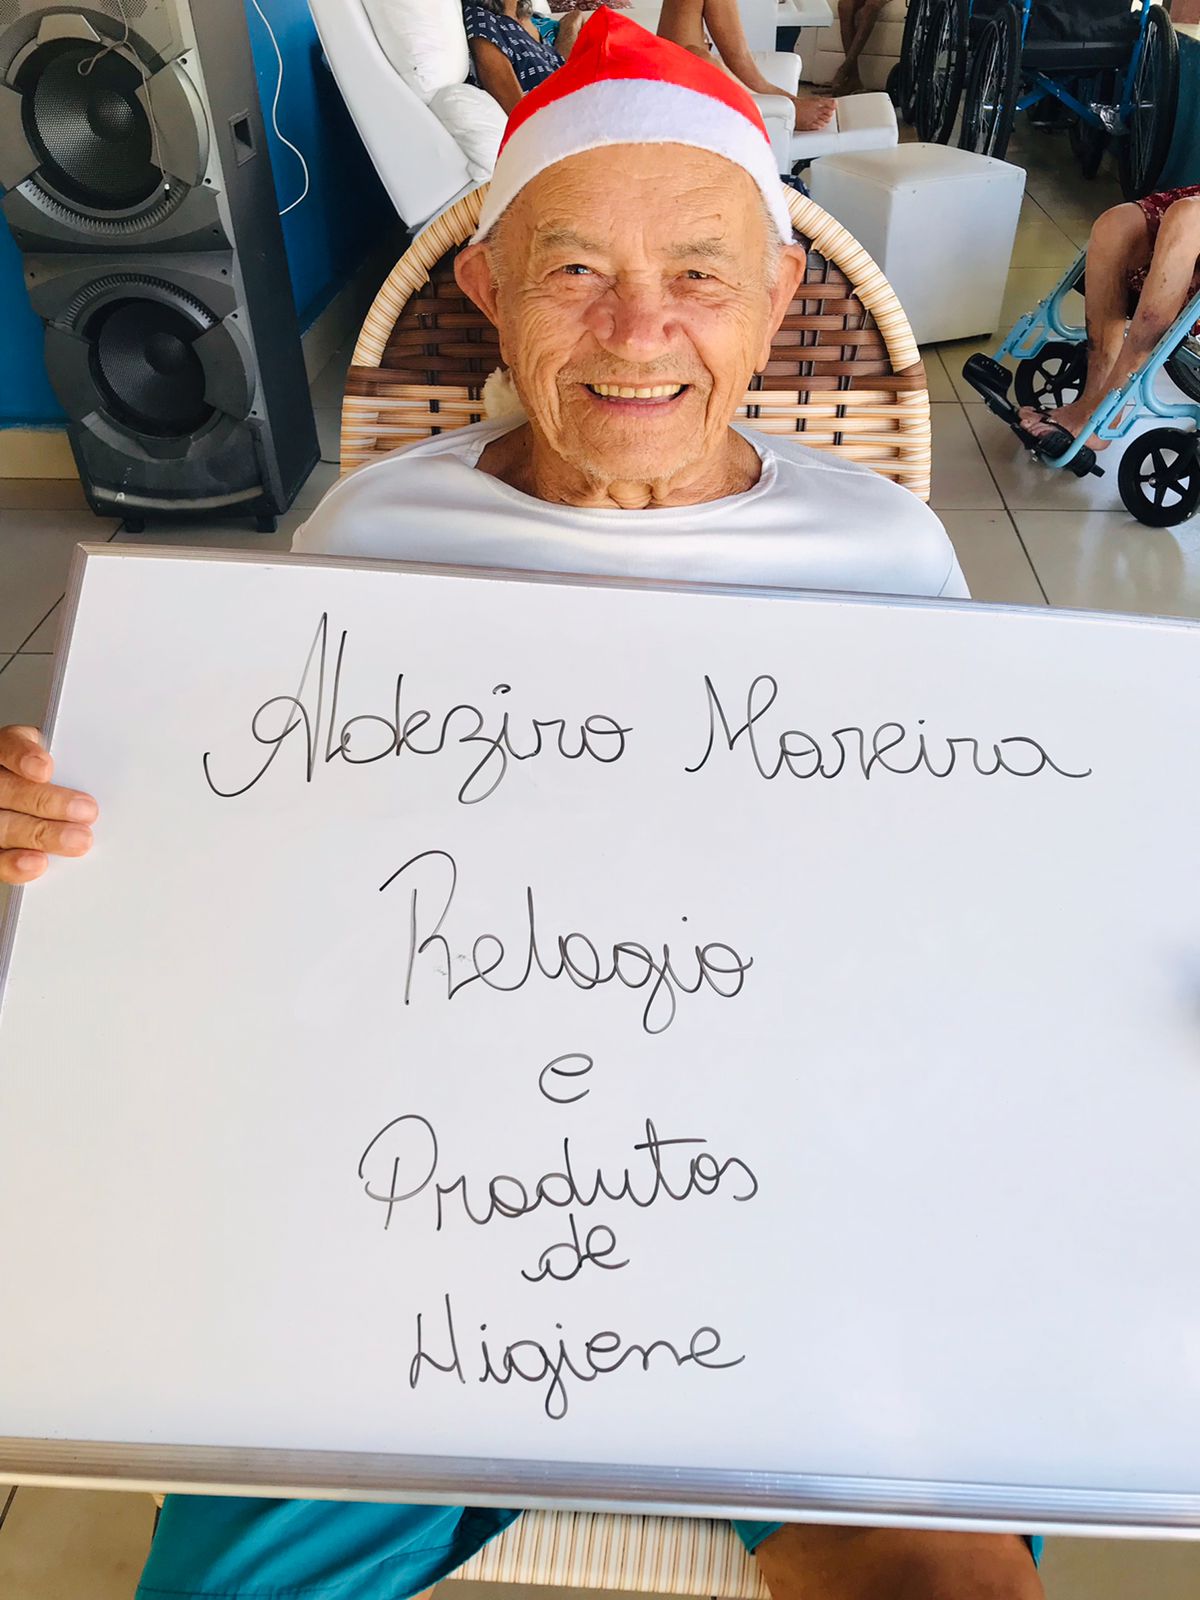 Aldeziro Moreira
Relogio
e
Produtos
de
Higiene